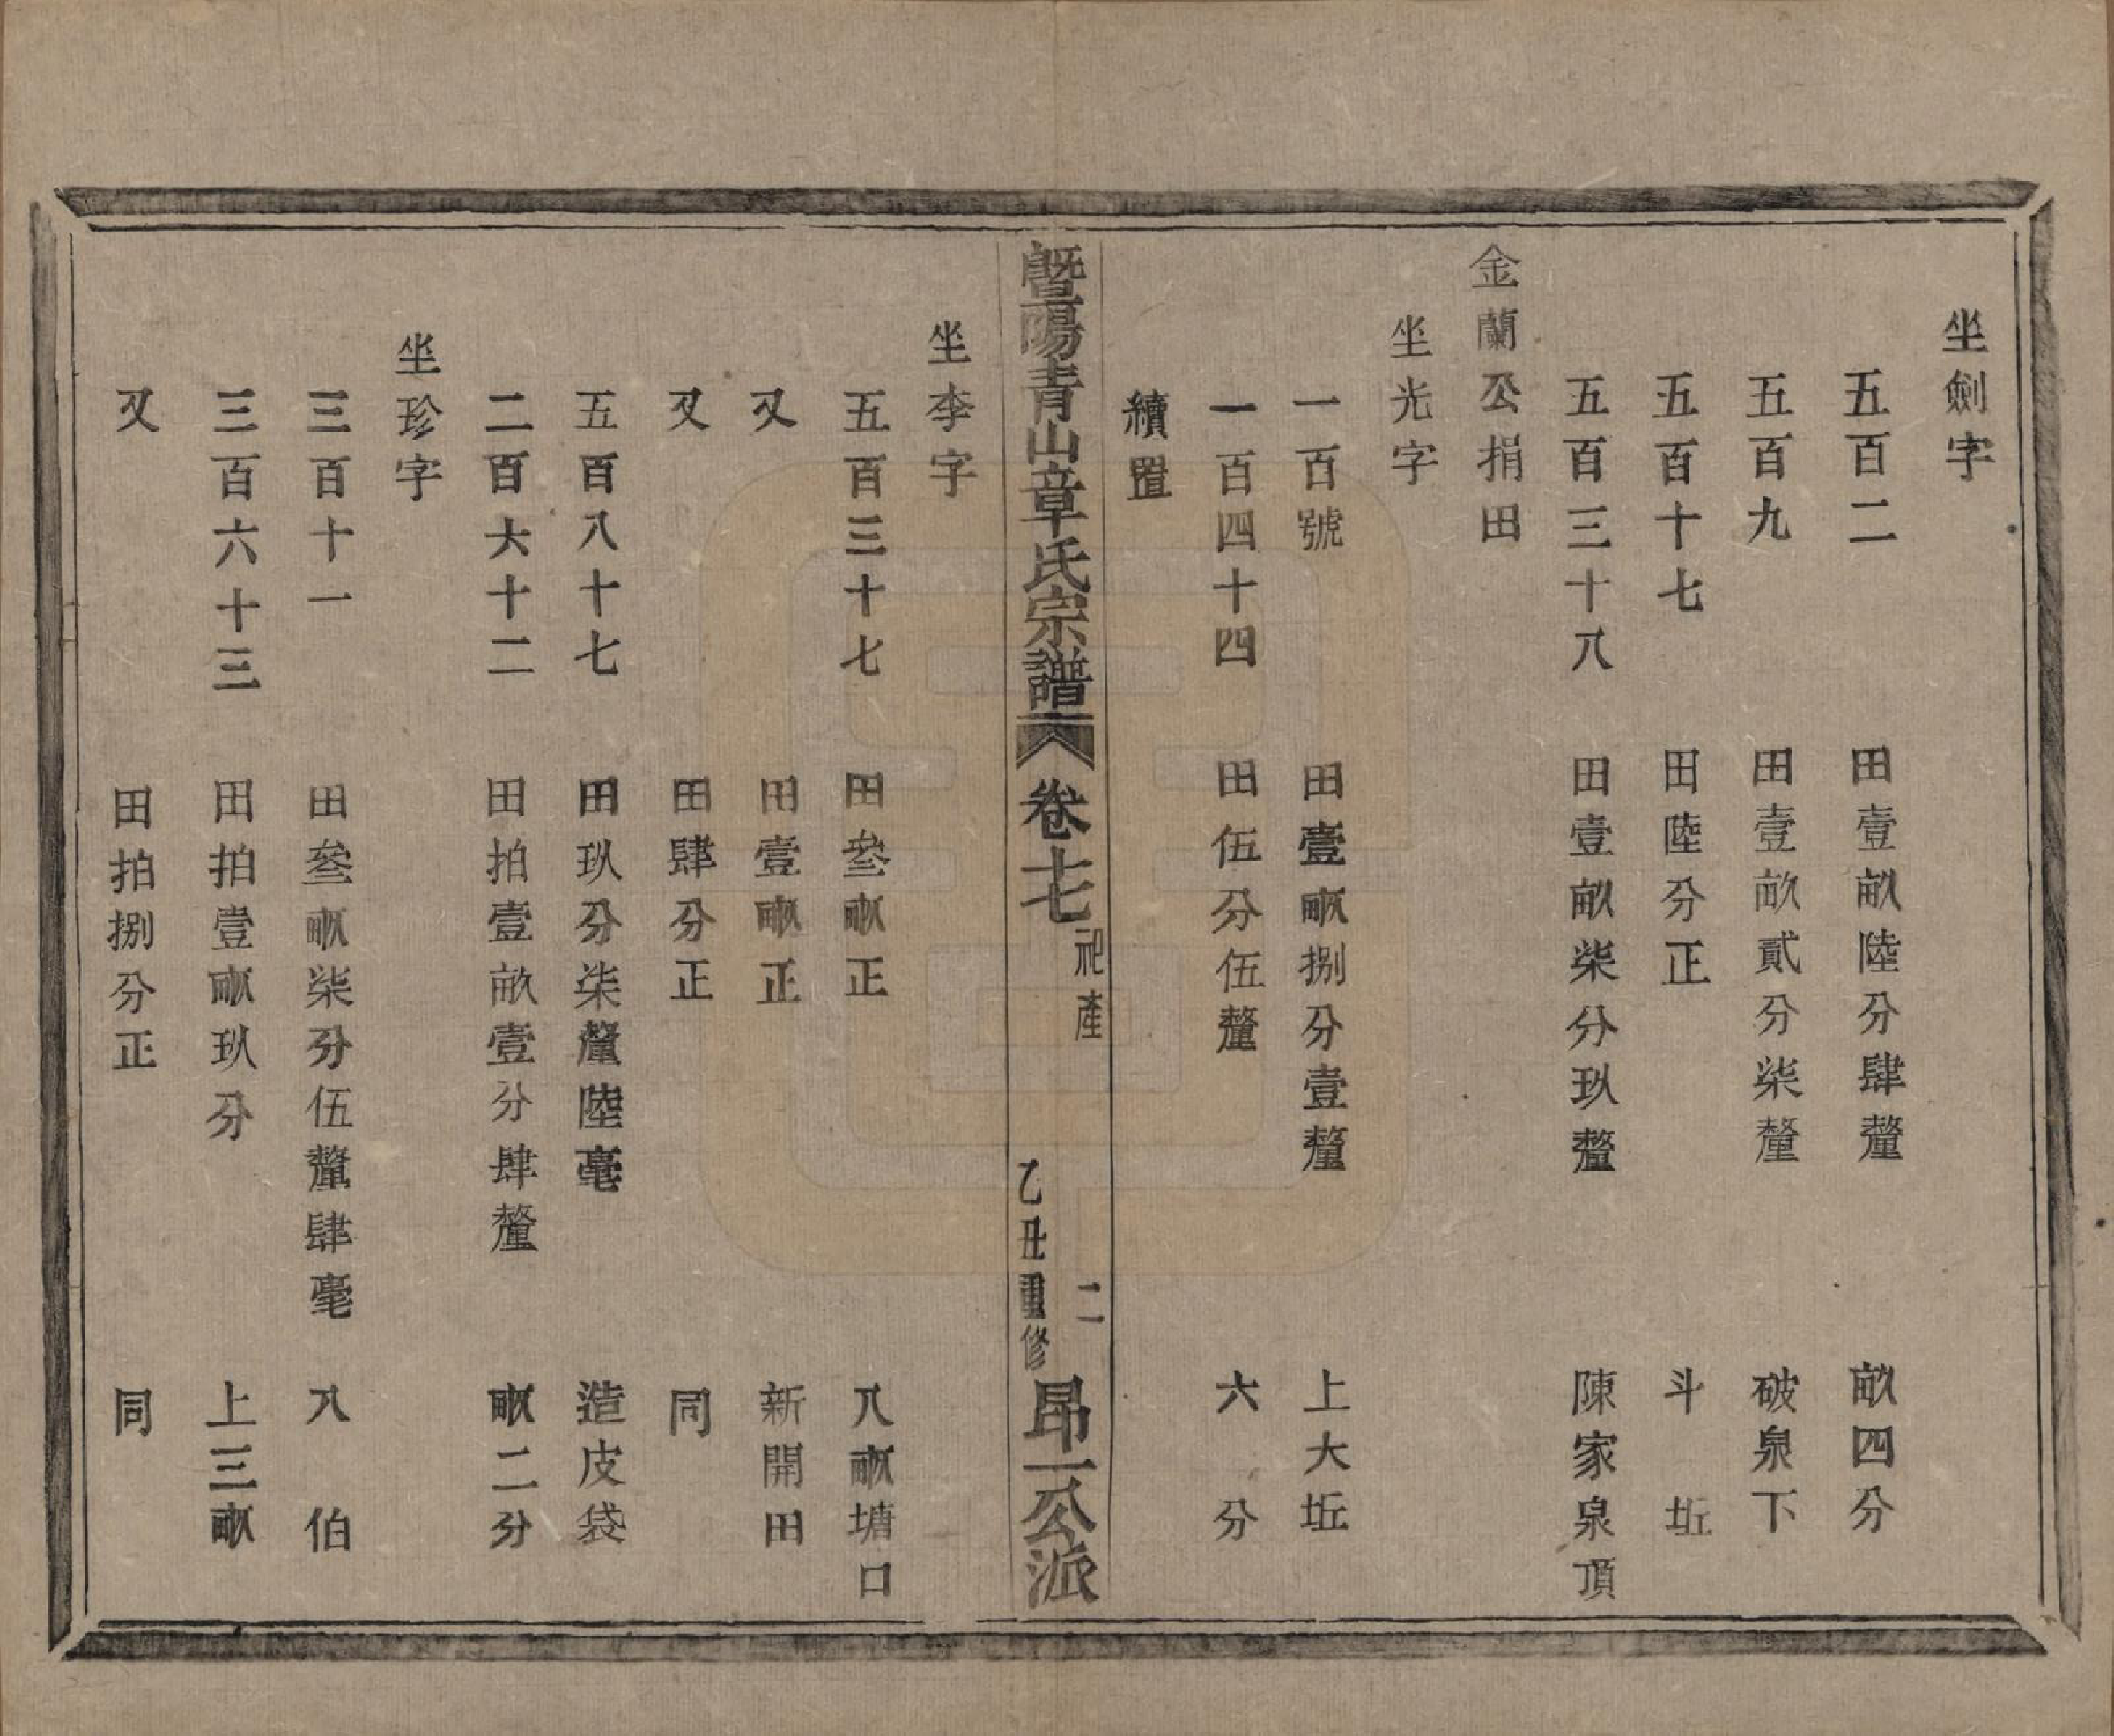 坐劍字
五百二　田壹畝陸分肆釐　畝四分
五百九　田壹畝貳分柒釐　破泉下
五百十七　田陸分正　斗坵
五百三十八　田壹畝柒分玖釐　陳家泉頂
金蘭公捐田
坐光字
一百號　田壹畝捌分壹釐　上大坵
一百四十四　田伍分伍釐　六分
續置
暨陽青山章氏宗譜　卷七　祀產　二　乙丑重修　昂一公派
坐李字
五百三十七　田叄畝正　八畝塘口
又　田壹畝正　新開田
又　田肆分正　同
五百八十七　田玖分柒釐陸毫　造皮袋
二百六十二　田拍壹畝壹分肆釐　畝二分
坐珍字
三百十一　田叄畝柒分伍釐肆毫　八伯
三百六十三　田拍壹畝玖分　上三畝
又　田拍捌分正　同